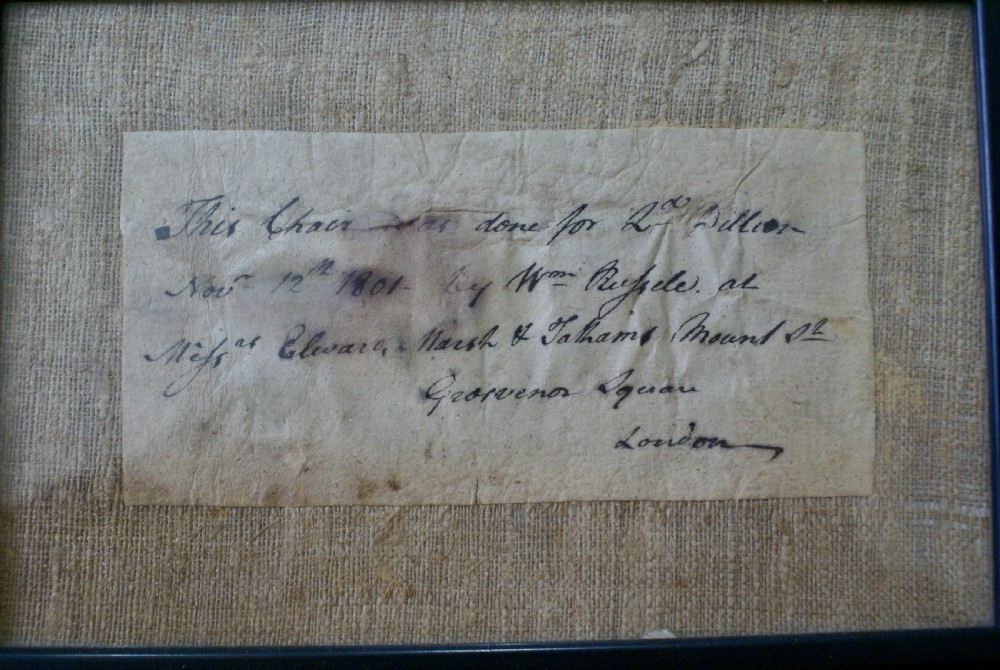 This Chair was done for Ld Dillon
Novr 12th 1801 by Wm Russele. at
Missrs Elward, Marsh & Tathams Mount St
Grosvenor Square
London